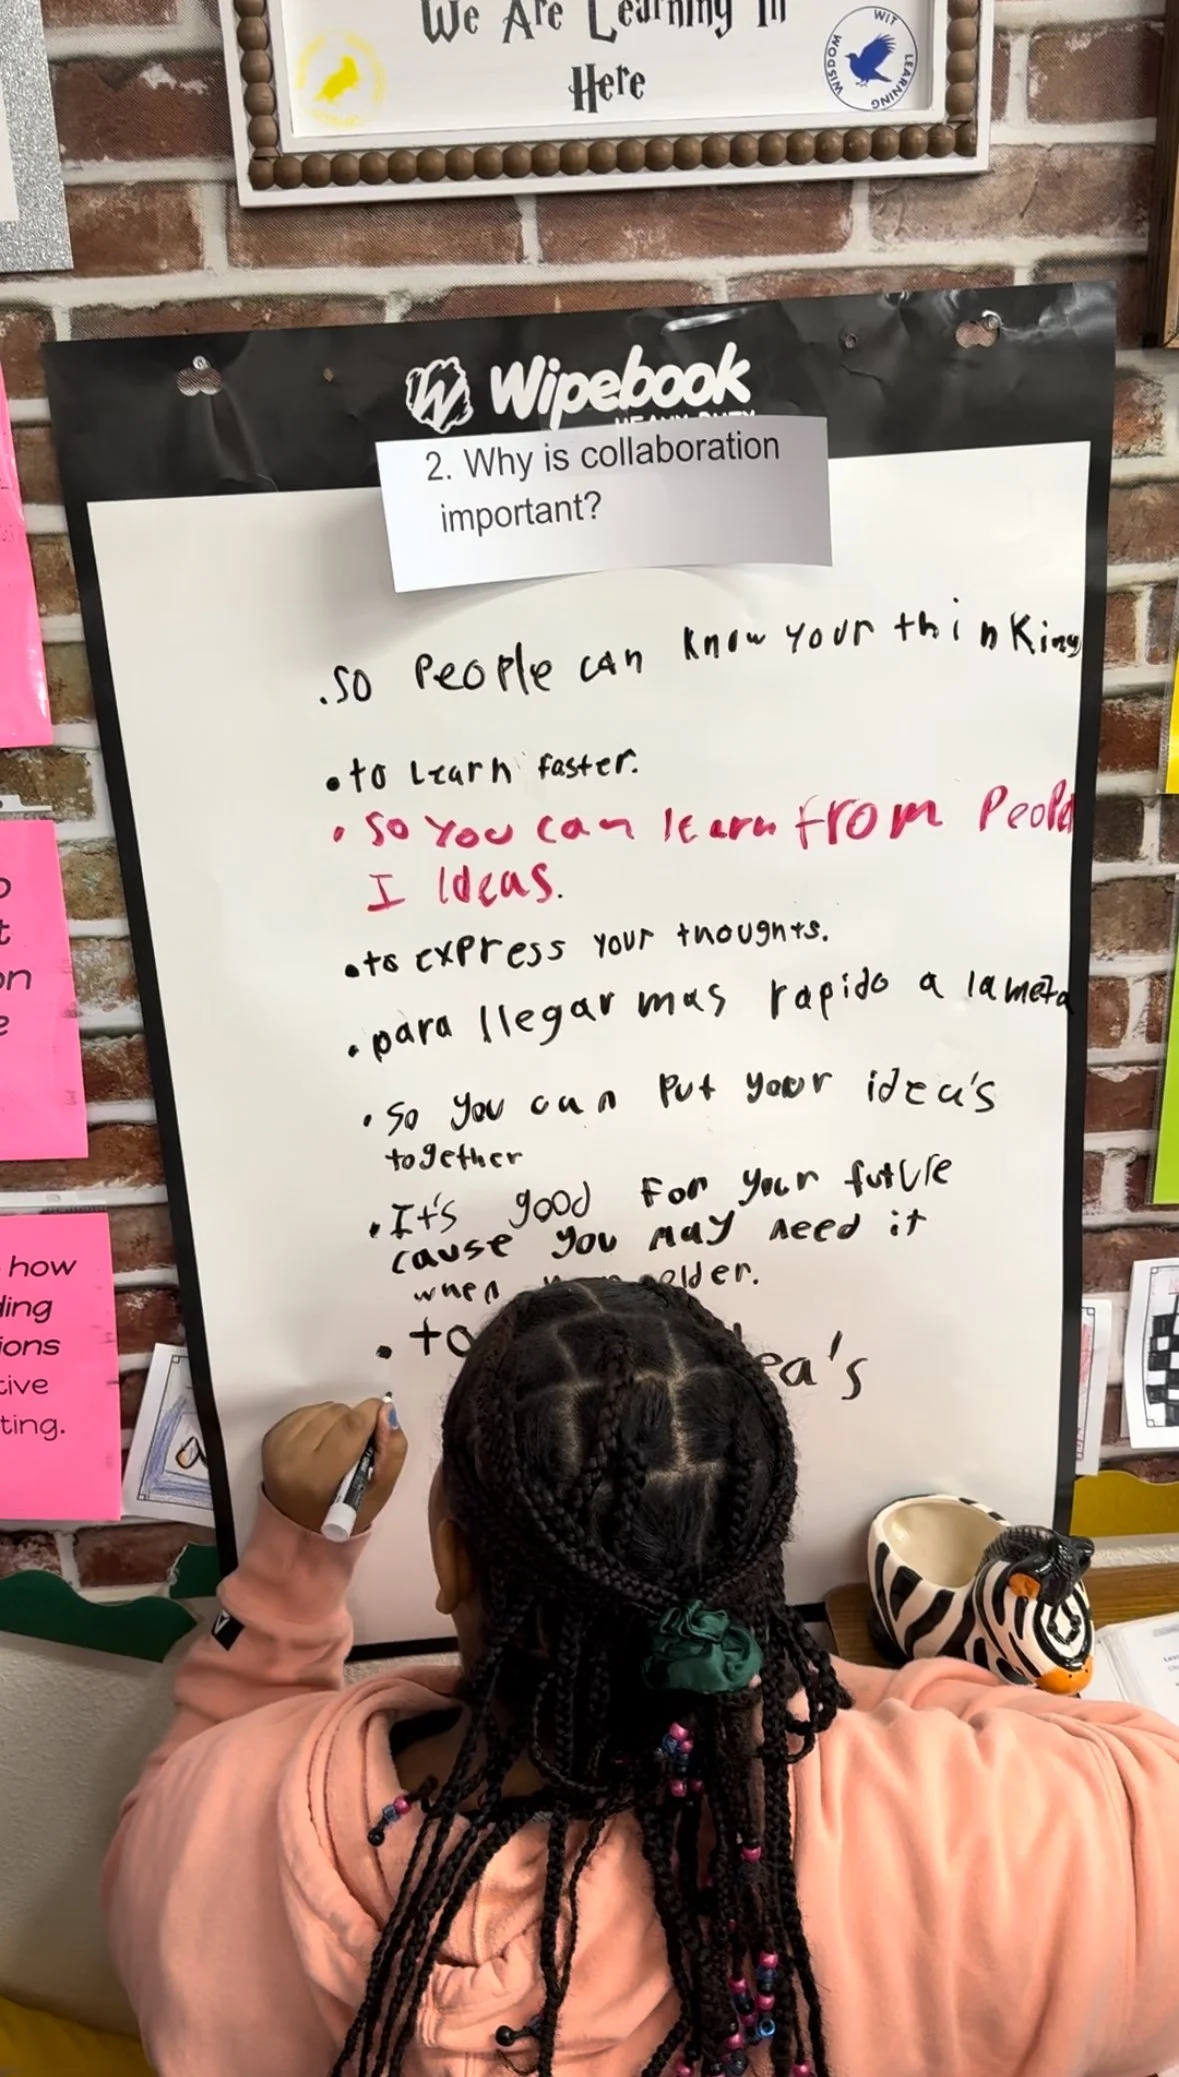 We Are Learning In
Here
WIT
LEARNING
WISDOM
Wipebook
HEAVY DUTY
2. Why is collaboration
important?
.so People can know your thinking
•to Learn faster.
• so you can learn from People
I Ideas.
•to express your thoughts.
•para llegar mas rapido a la meta
•so you can put your idea's
together
•It's good for your future
cause you may need it
when older.
•to
ea's
on
how
ding
ions
tive
ting.